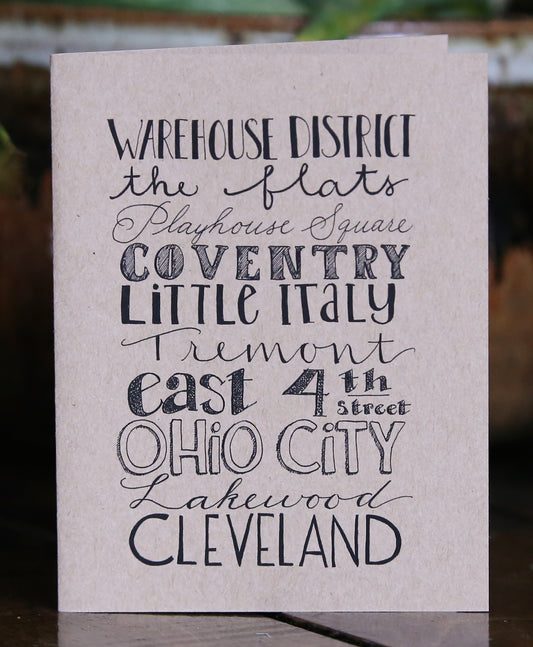 WAREHOUSE DISTRICT
the flats
Playhouse Square
COVENTRY
LiTTLE ITALY
Tremont
east 4th street
OHiO CiTY
Lakewood
CLEVELAND